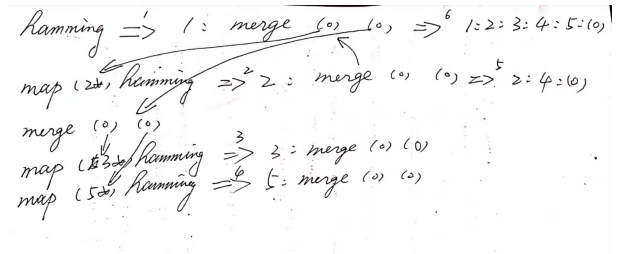 hamming =>¹ 1 : merge (o) (o) =>⁶ 1:2:3:4:5:(o)
map (2*) hamming =>² 2 : merge (o) (o) =>⁵ 2:4:(o)
merge (o) (o)
map (3*) hamming =>³ 3 : merge (o) (o)
map (5*) hamming =>⁴ 5 : merge (o) (o)